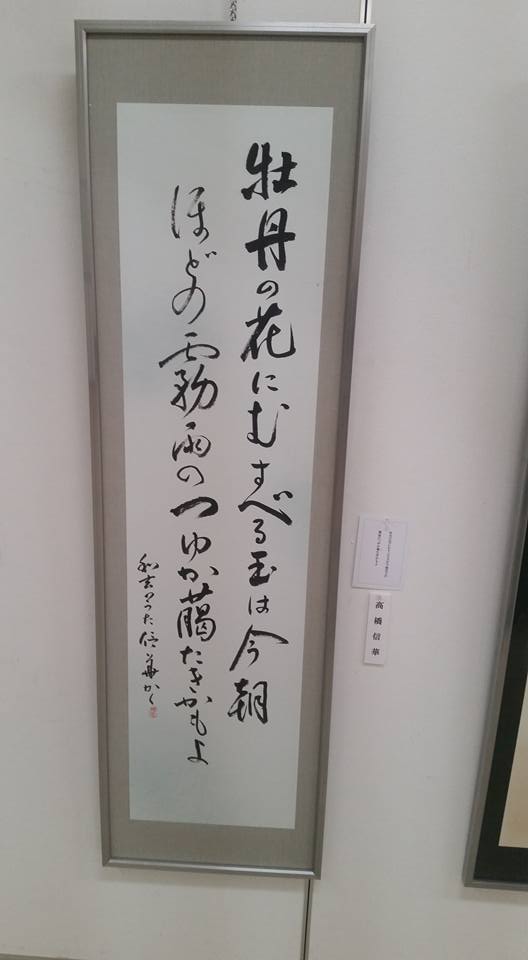 牡丹の花にむすべる玉は今朝
ほどの霧雨のつゆか﨟たきかもよ
利玄のうた 信華かく
高橋信華